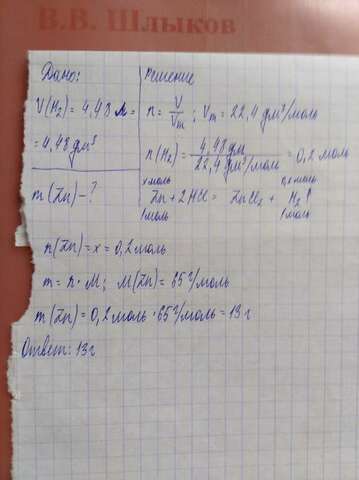 В.В. Шлыков
Дано:
V(H₂) = 4,48 л =
= 4,48 дм³
m(Zn) - ?
Решение
n = V/Vm ; Vm = 22,4 дм³/моль
n(H₂) = 4,48 дм / 22,4 дм³/моль = 0,2 моль
x моль
Zn + 2HCl = ZnCl₂ + H₂↑
1 моль 1 моль
n(Zn) = x = 0,2 моль
m = n · M; M(Zn) = 65 г/моль
m(Zn) = 0,2 моль · 65 г/моль = 13 г
Ответ: 13 г